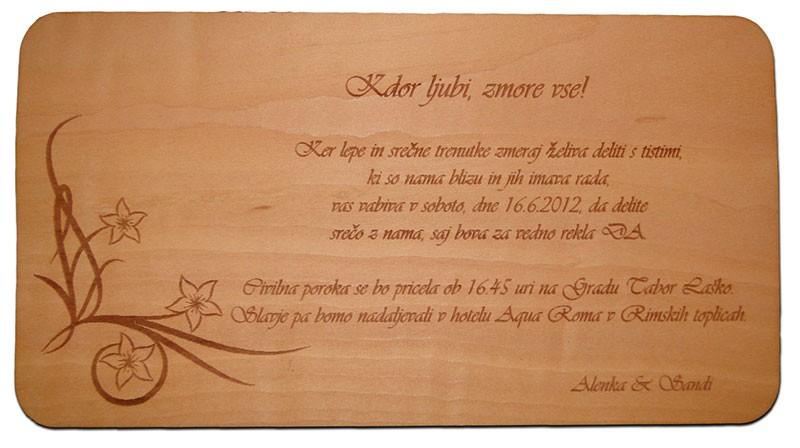 Kdor ljubi, zmore vse!
Ker lepe in srečne trenutke zmeraj želiva deliti s tistimi,
ki so nama blizu in jih imava rada,
vas vabiva v soboto, dne 16.6.2012, da delite
srečo z nama, saj bova za vedno rekla DA.
Civilna poroka se bo pricela ob 16.45 uri na Gradu Tabor Laško.
Slavje pa bomo nadaljevali v hotelu Aqua Roma v Rimskih toplicah.
Alenka & Sandi